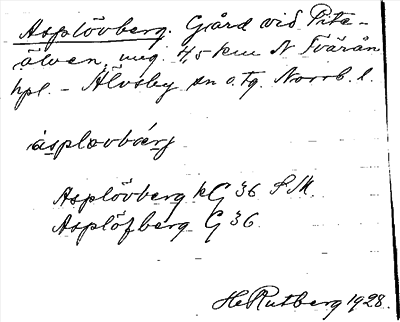 Asplövberg. Gård vid Pite-
älven, ung. 4,5 km N Tvärån
hpl. - Älvsby sn o. tg. Norrb. l.
àsplœvbærj
Asplövberg kG 36 S.M.
Asplöfberg G 36.
H. Rutberg 1928.